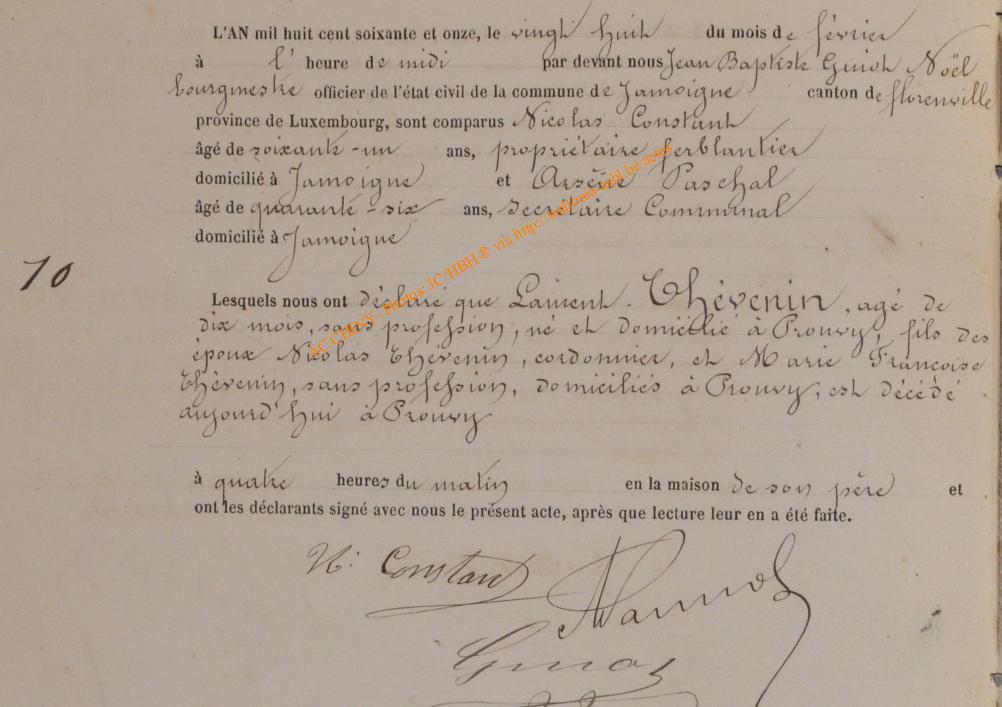 L'AN mil huit cent soixante et onze, le vingt huit du mois de février
à l' heure de midi par devant nous Jean Baptiste Guiot Noël
bourgmestre officier de l'état civil de la commune de Jamoigne canton de florenville
province de Luxembourg, sont comparus Nicolas Constant
âgé de soixante-un ans, propriétaire ferblantier
domicilié à Jamoigne et Arsène Paschal
âgé de quarante-six ans, Secrétaire Communal
domicilié à Jamoigne
10
Lesquels nous ont déclaré que Laurent Thévenin, agé de
dix mois, sans profession, né et domicilié à Prouvy, fils des
époux Nicolas Thévenin, cordonnier, et Marie Françoise
Thévenin, sans profession, domiciliés à Prouvy, est décédé
aujourd'hui à Prouvy
à quatre heures du matin en la maison de son père et
ont les déclarants signé avec nous le présent acte, après que lecture leur en a été faite.
N. Constant
Guiot
AC CHINY - Photos JC/HBH ® via http://